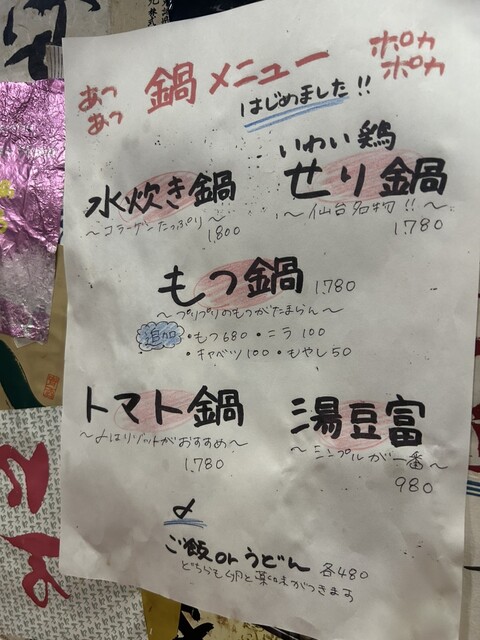 あつあつ
鍋メニュー
ポカポカ
はじめました!!
水炊き鍋
〜コラーゲンたっぷり〜
1.800
いわい鶏
せり鍋
〜仙台名物!!〜
1.780
もつ鍋 1.780
〜プリプリのもつがたまらん〜
追加 ・もつ680 ・ニラ100
・キャベツ100 ・もやし50
トマト鍋
〜〆はリゾットがおすすめ〜
1.780
湯豆富
〜シンプルが一番〜
980
〆
ご飯orうどん 各480
どちらも卵と薬味がつきます